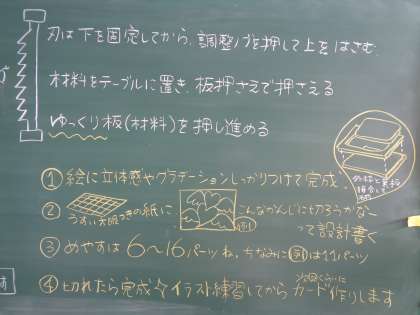 刃は下を固定してから、調整ノブを押して上をはさむ、
材料をテーブルに置き、板押さえで押さえる
ゆっくり板(材料)を押し進める
①絵に立体感やグラデーションしっかりつけて完成、
② うすい 方眼つきの紙に 例1 こんなかんじに切ろうかなー
って設計書く
③めやすは6〜16パーツね、ちなみに例は11パーツ
④切れたら完成☆イラスト練習してから カード作りします